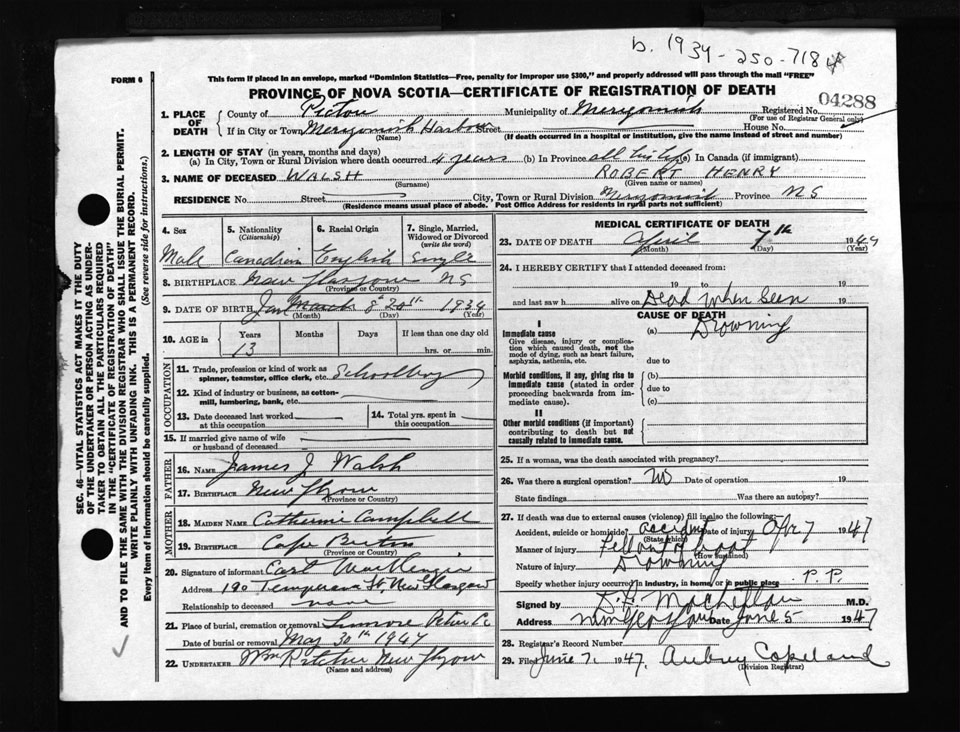 b. 1934-250-718
FORM 6
This form if placed in an envelope, marked "Dominion Statistics—Free, penalty for improper use $300," and properly addressed will pass through the mail "FREE"
PROVINCE OF NOVA SCOTIA—CERTIFICATE OF REGISTRATION OF DEATH
04288
1. PLACE OF DEATH
County of Pictou Municipality of Merigomish Registered No.
(For use of Registrar General only)
If in City or Town Merigomish Harbour Street House No.
(Name) (If death occurred in a hospital or institution, give the name instead of street and number)
2. LENGTH OF STAY (in years, months and days)
(a) In City, Town or Rural Division where death occurred 4 years (b) In Province all his life (c) In Canada (if immigrant)
3. NAME OF DECEASED WALSH ROBERT HENRY
(Surname) (Given name or names)
RESIDENCE No. Street City, Town or Rural Division Merigomish Province N S
(Residence means usual place of abode. Post Office Address for residents in rural parts not sufficient)
4. Sex 5. Nationality (Citizenship) 6. Racial Origin 7. Single, Married, Widowed or Divorced (write the word)
Male Canadian English Single
8. BIRTHPLACE New Glasgow N S
(Province or Country)
9. DATE OF BIRTH Jan March 8 20th 1934
(Month) (Day) (Year)
10. AGE in Years Months Days If less than one day old
13 hrs. or min.
OCCUPATION
11. Trade, profession or kind of work as spinner, teamster, office clerk, etc. Schoolboy
12. Kind of industry or business, as cotton-mill, lumbering, bank, etc.
13. Date deceased last worked at this occupation
14. Total yrs. spent in this occupation
15. If married give name of wife or husband of deceased
FATHER
16. NAME James J Walsh
17. BIRTHPLACE New Glasgow
(Province or Country)
MOTHER
18. MAIDEN NAME Catherine Campbell
19. BIRTHPLACE Cape Breton
(Province or Country)
20. Signature of informant Earl MacKenzie
Address 190 Temperance St, New Glasgow
Relationship to deceased none
21. Place of burial, cremation or removal Pictou Co
Date of burial or removal May 30th 1947
22. UNDERTAKER Wm Ritchie New Glasgow
(Name and address)
MEDICAL CERTIFICATE OF DEATH
23. DATE OF DEATH April 7th 1947
(Month) (Day) (Year)
24. I HEREBY CERTIFY that I attended deceased from:
19 to 19
and last saw h alive on Dead when seen 19
CAUSE OF DEATH
I
Immediate cause
Give disease, injury or complication which caused death, not the mode of dying, such as heart failure, asphyxia, asthenia, etc.
(a) Drowning
due to
Morbid conditions, if any, giving rise to immediate cause (stated in order proceeding backwards from immediate cause).
(b)
due to
(c)
II
Other morbid conditions (if important) contributing to death but not causally related to immediate cause.
25. If a woman, was the death associated with pregnancy?
26. Was there a surgical operation? No Date of operation 19
State findings Was there an autopsy?
27. If death was due to external causes (violence) fill in also the following:
Accident, suicide or homicide? accident Date of injury Apr 7 1947
(State which)
Manner of injury Fell out of boat
(How sustained)
Nature of injury Drowning
Specify whether injury occurred in industry, in home, or in public place P. P.
Signed by M.D.
Address New Glasgow Date June 5 1947
28. Registrar's Record Number
29. Filed June 7, 1947. Aubrey Copeland
(Division Registrar)
SEC. 46—VITAL STATISTICS ACT MAKES IT THE DUTY
OF THE UNDERTAKER OR PERSON ACTING AS UNDER-
TAKER TO OBTAIN ALL THE PARTICULARS REQUIRED
IN THE "CERTIFICATE OF REGISTRATION OF DEATH"
AND TO FILE THE SAME WITH THE DIVISION REGISTRAR WHO SHALL ISSUE THE BURIAL PERMIT.
WRITE PLAINLY WITH UNFADING INK. THIS IS A PERMANENT RECORD.
Every item of information should be carefully supplied. (See reverse side for instructions.)